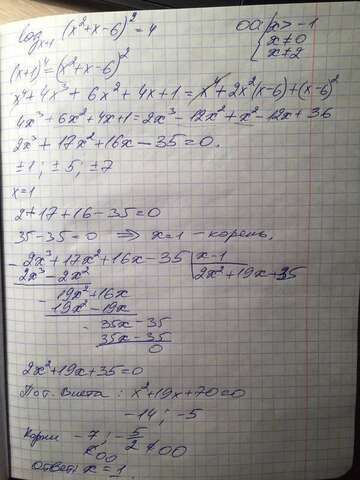 log_{x+1} (x²+x-6)² = 4
ОО: { x > -1
x ≠ 0
x ≠ 2
(x+1)⁴ = (x²+x-6)²
x⁴ + 4x³ + 6x² + 4x + 1 = x⁴ + 2x²(x-6) + (x-6)²
4x³ + 6x² + 4x + 1 = 2x³ - 12x² + x² - 12x + 36
2x³ + 17x² + 16x - 35 = 0.
±1; ±5; ±7
x = 1
2 + 17 + 16 - 35 = 0
35 - 35 = 0 ⇒ x = 1 - корень.
- 2x³ + 17x² + 16x - 35 | x - 1
2x³ - 2x² | 2x² + 19x + 35
- 19x² + 16x
19x² - 19x
- 35x - 35
35x - 35
0
2x² + 19x + 35 = 0
По т. Виета: x² + 19x + 70 = 0
-14; -5
Корни -7; -5/2 ∉ ОО
∉ ОО
Ответ: x = 1.